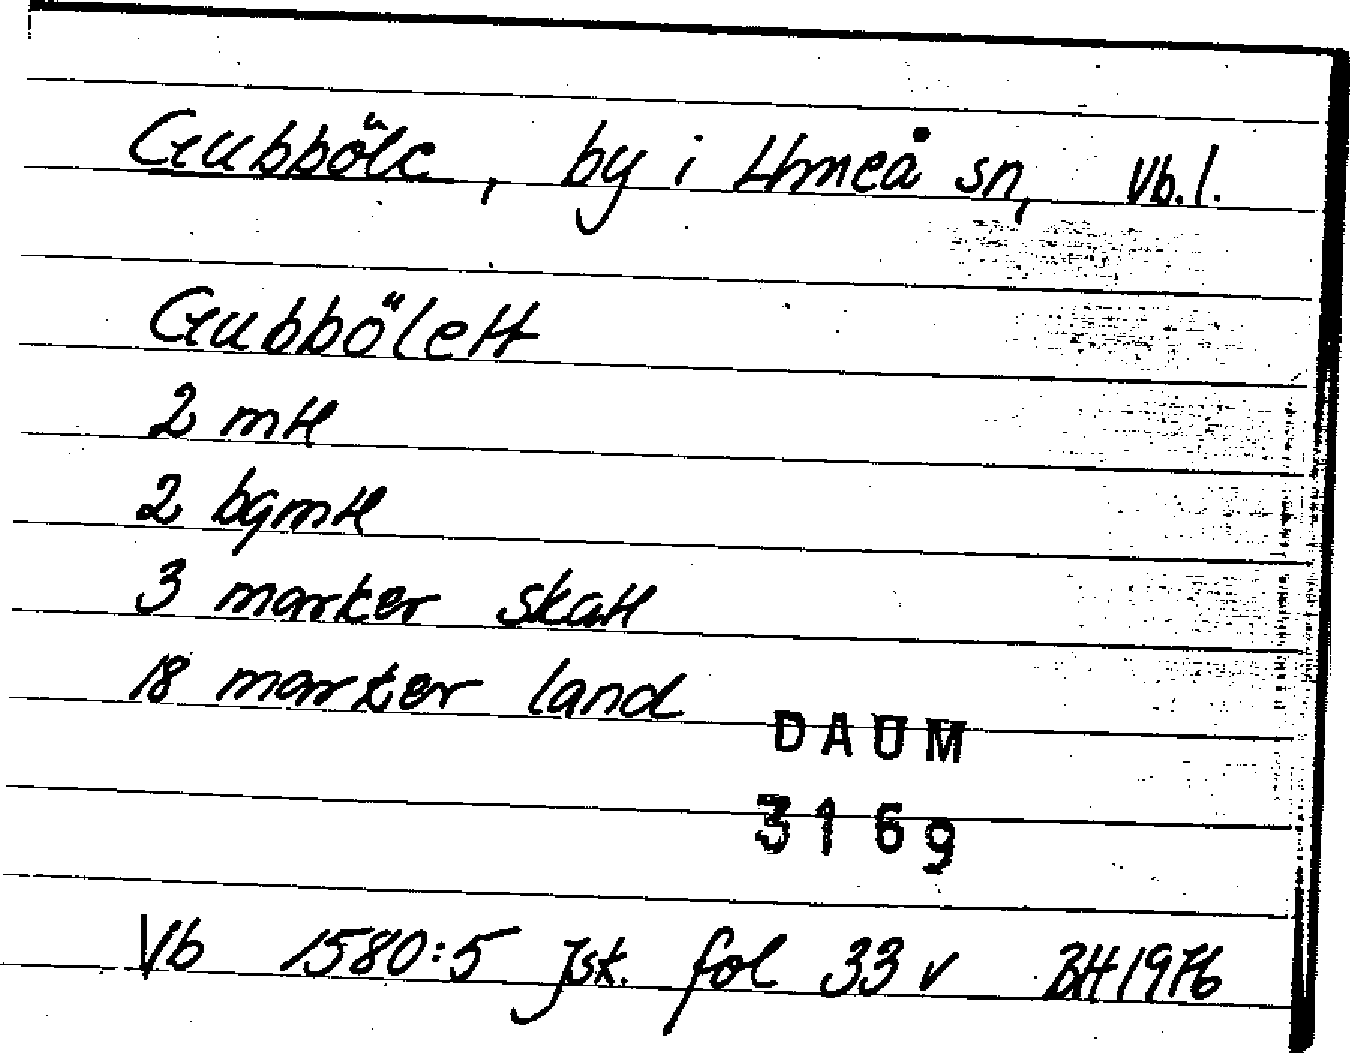 Gubböle, by i Umeå sn, Vb.l.
Gubbölett
2 mtl
2 bgmtl
3 marker skatt
18 marker land
DAUM
3169
Vb 1580:5 Jsk. fol 33 v BH 1976